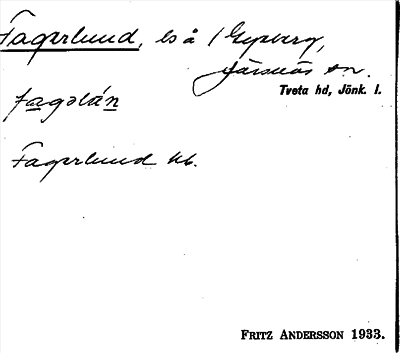 Fagerlund, ls å 1 Gypberg,
Järsnäs sn.
Tveta hd, Jönk. l.
fagəlán
Fagerlund kb.
FRITZ ANDERSSON 1933.